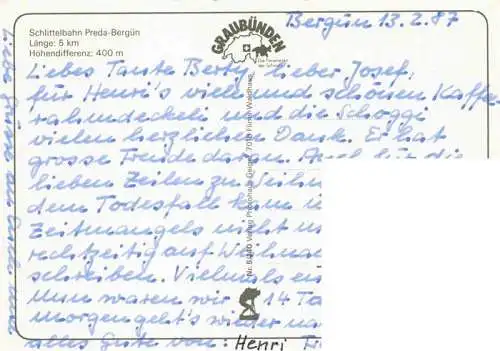 Schlittelbahn Preda-Bergün
Länge: 5 km
Höhendifferenz: 400 m
GRAUBÜNDEN
Die Ferienecke
der Schweiz
Bergün 13.2.87
Liebes Tante Berty, lieber Josef,
für Henri's viele und schönen Kaffe
rahmdeckeli und die Schoggi
vielen herzlichen Dank. Er hat
grosse Freude daran. Auch für die
lieben Zeilen zu Weihn
dem Todesfall kam i
Zeitmangels nicht m
rechtzeitig auf Weihnac
schreiben. Vielmals en
Nun waren wir 14 Ta
morgen geht's wieder na
alles Gute von: Henri
Liebe Grüsse an
Nr. 5340 Verlag Photohaus Geiger, 7018 Flims-Waldhaus